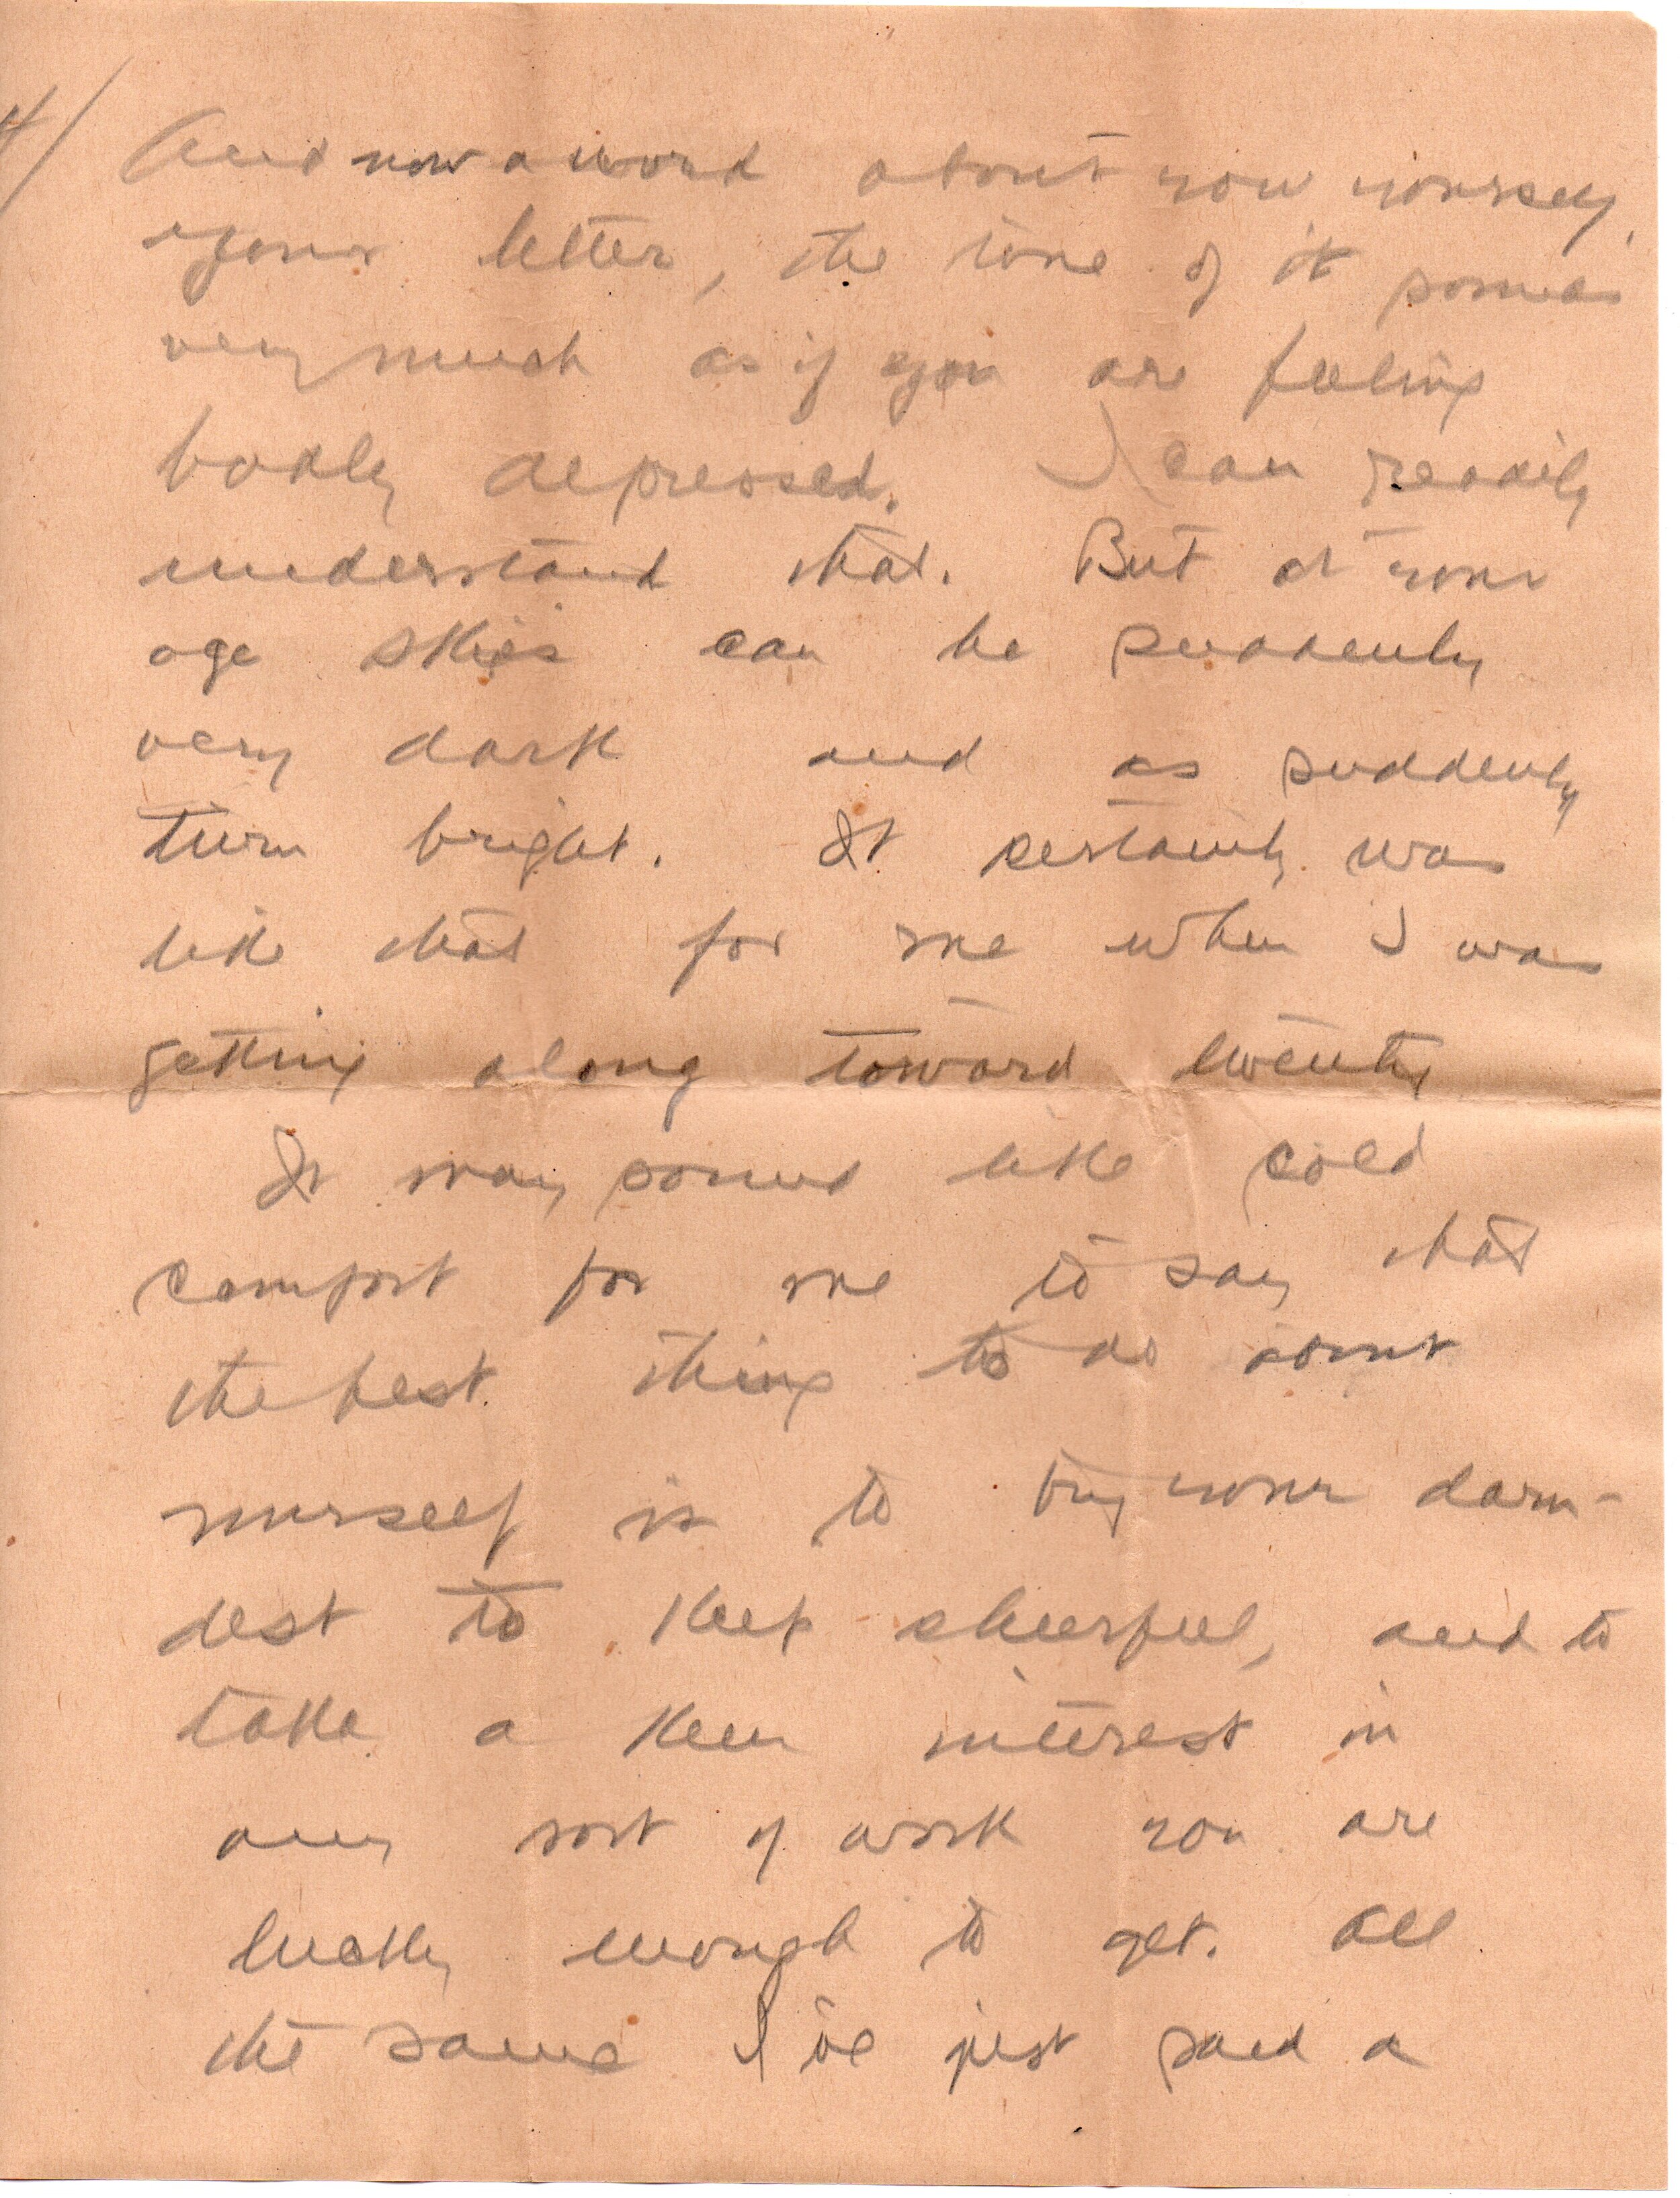 4/ And now a word about you yourself.
Your letter, the tone of it sounds
very much as if you are feeling
badly depressed. I can readily
understand that. But at your
age skies can be suddenly
very dark and as suddenly
turn bright. It certainly was
like that for me when I was
getting along toward twenty
It may sound like cold
comfort for me to say that
the best thing to do about
yourself is to try your darn-
dest to keep cheerful, and to
take a keen interest in
any sort of work you are
lucky enough to get. All
the same I've just said a